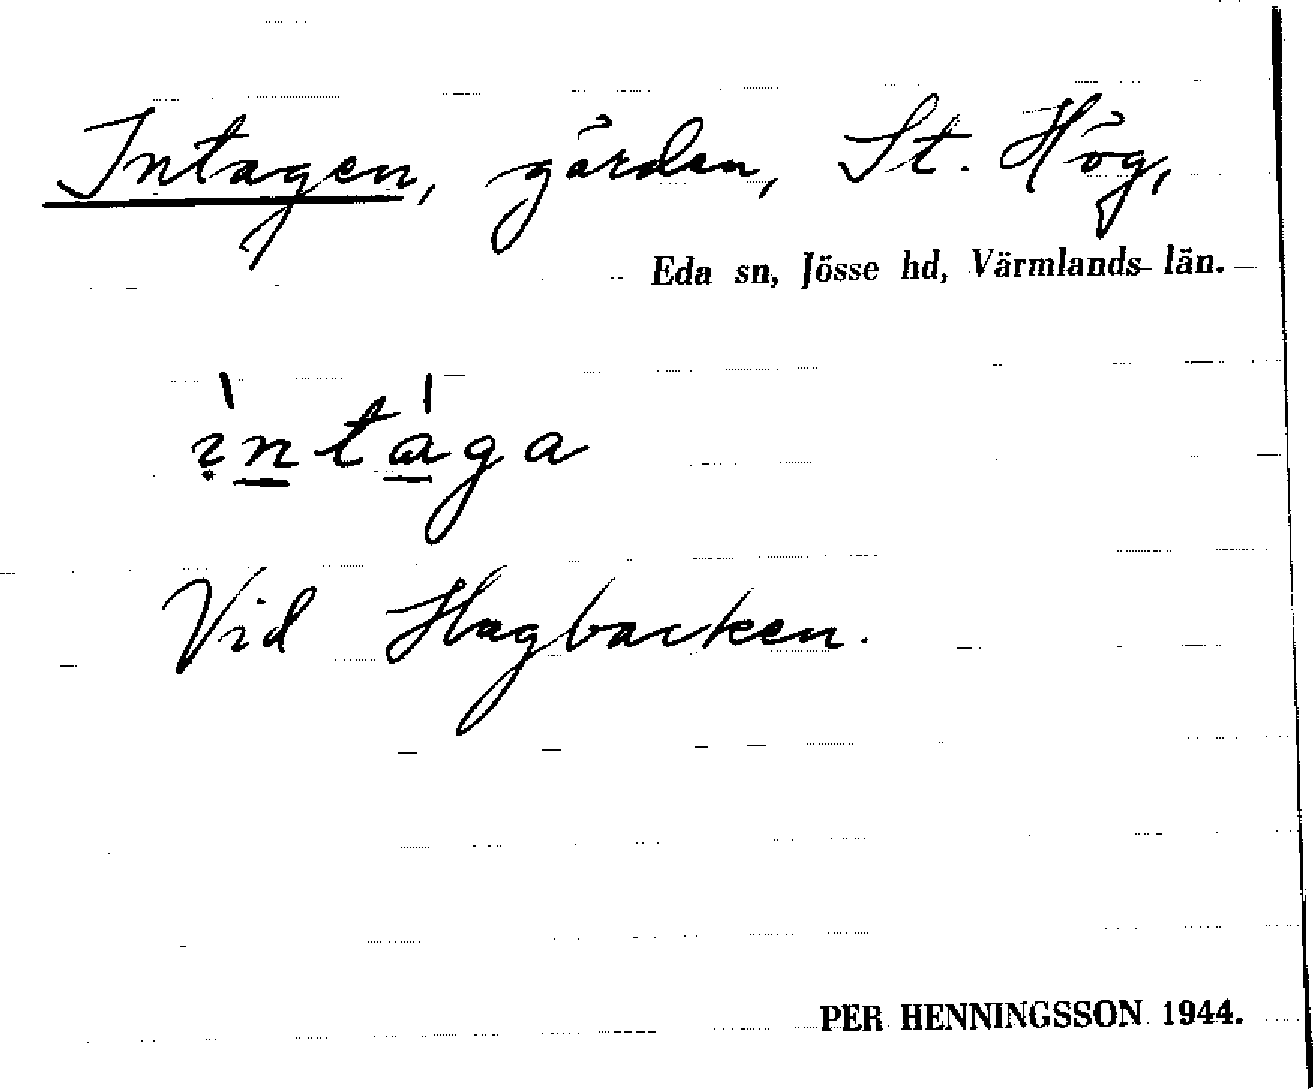 Intagen, gärden, St. Hög,
Eda sn, Jösse hd, Värmlands län.
ìntága
Vid Hagbacken.
PER HENNINGSSON 1944.